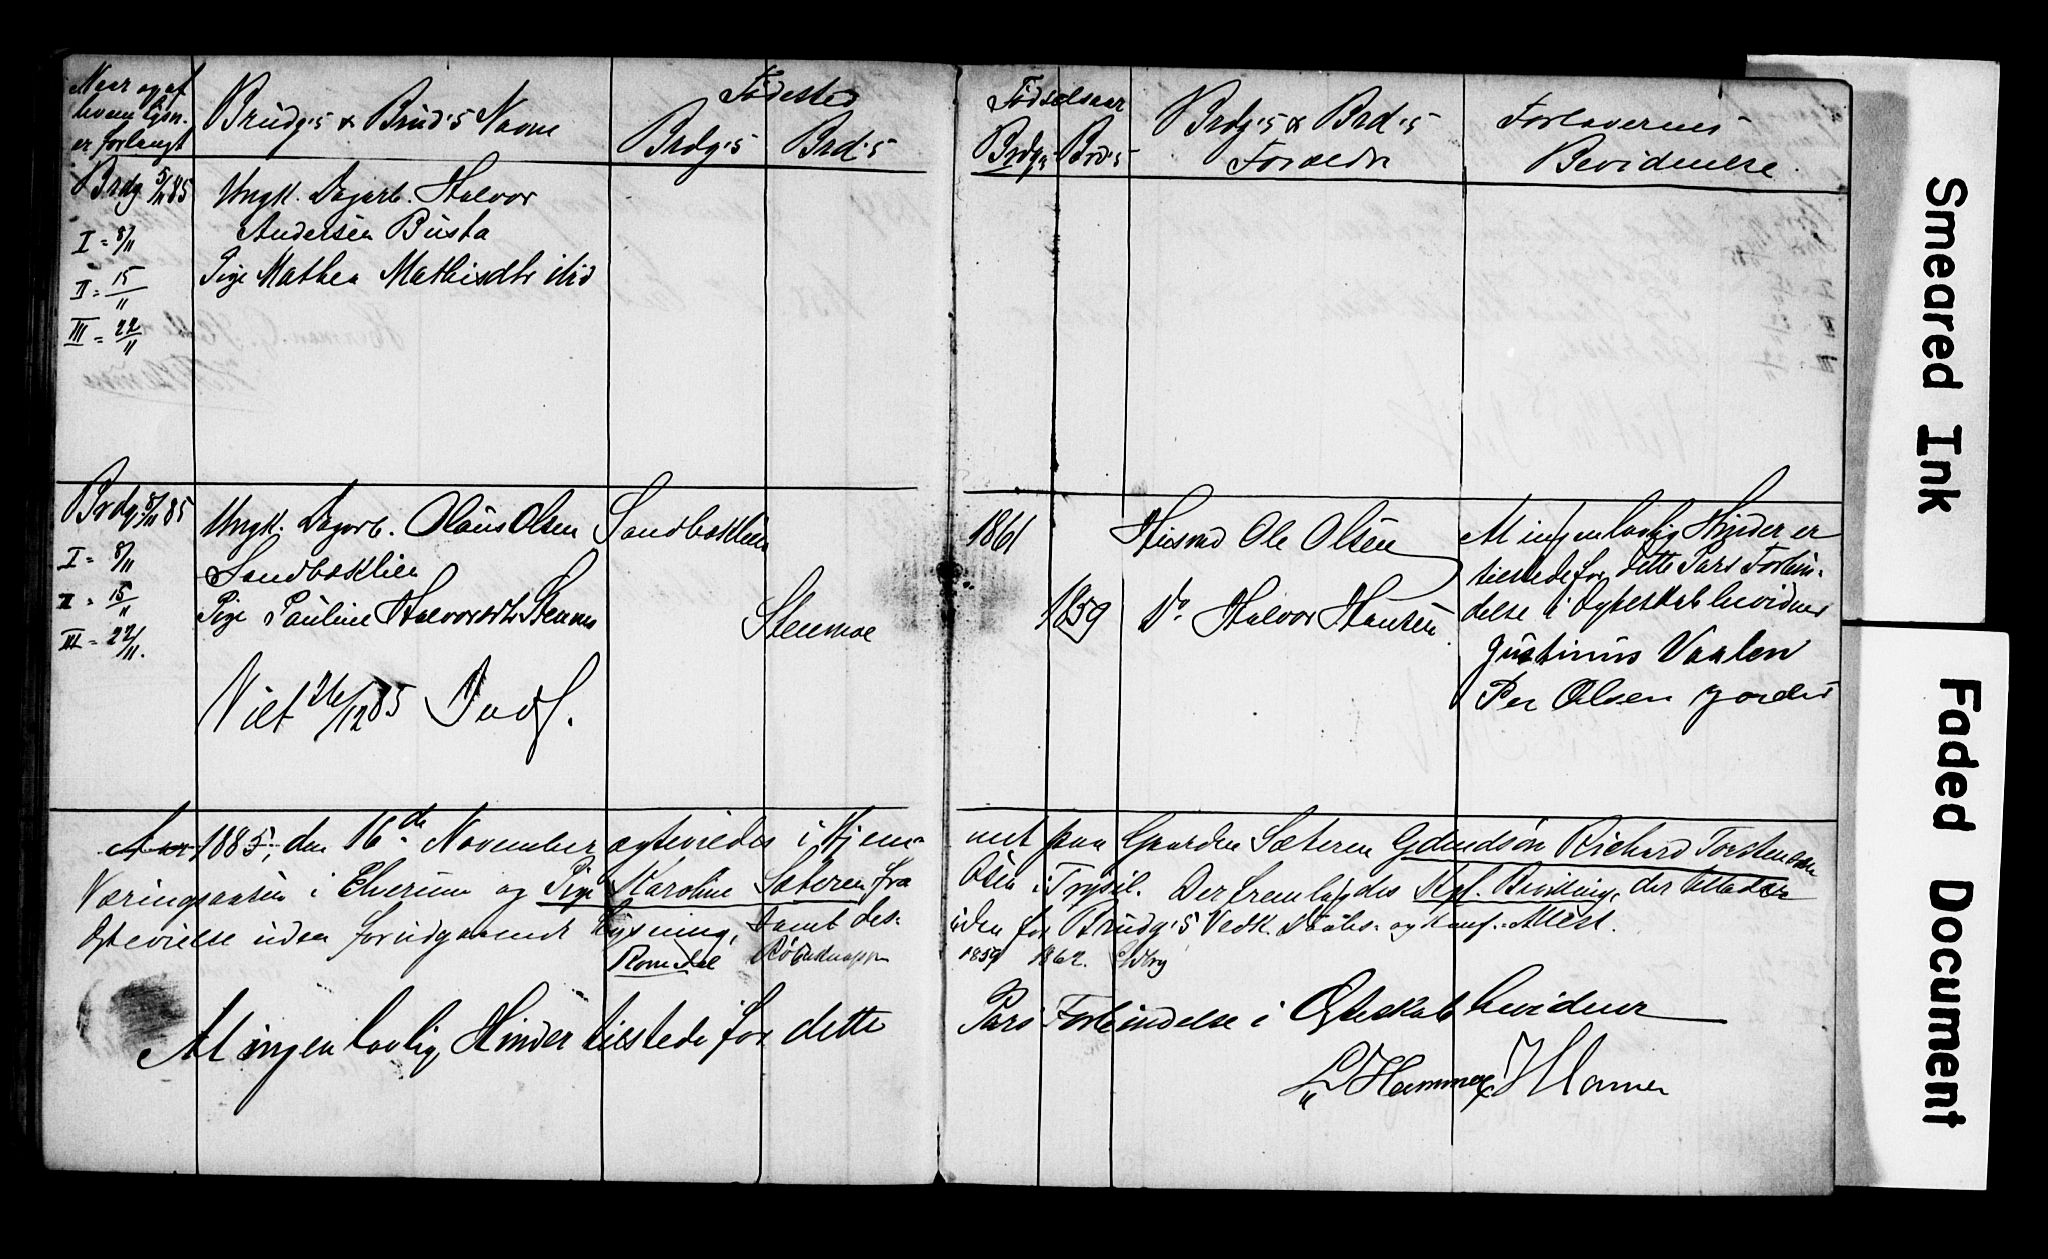 Naar og af
hvem Lysn.
er forlangt
Brudg's & Brud's Navne
Fødested
Brdg's Brd's
Fødselsaar
Brdg's Brd's
Brdg's & Brd's
Forældre
Forlovernes
Bevidnelse.
Brdg 5/11 85
I = 8/11
II = 15/11
III = 22/11
Ungk. Dagarb. Halvor
Andersen Busta
Pige Mathea Mathisdtr ibid
Brdg. 8/11 85
I = 8/11
II = 15/11
III = 22/11.
Ungk. Dagarb. Olaus Olsen
Sandbæklien
Pige Pauline Halvorsdtr Stenmoe
Viet 26/12 85
Sandbæklien
Stenmoe
1861
1859
Husmd Ole Olsen
Do Halvor Hansen
At ingen lovlig Hinder er
tilstede for dette Pars Forbin-
delse i Ægteskab bevidner
Justinus Vaalen
Per Olsen Jordet
Aar 1885, den 16de November ægteviedes i Hjem-
met paa Gaarden Sæteren Gdmdsøn Richard Torstensen
Næringsaasen i Elverum og Pige Karoline Sæteren fra
Osen i Trysil. Der fremlagdes Kgl. Bevilling, der tillader
Ægtevielse uden forudgaaende Lysning, samt des-
uden for Brudg's Vedk. Daabs- og Konf.-Attest.
Romedal
1859 1862.
At ingen lovlig Hinder tilstede for dette
Pars Forbindelse i Ægteskab bevidner
L Hammer
Smeared Ink
Faded Document